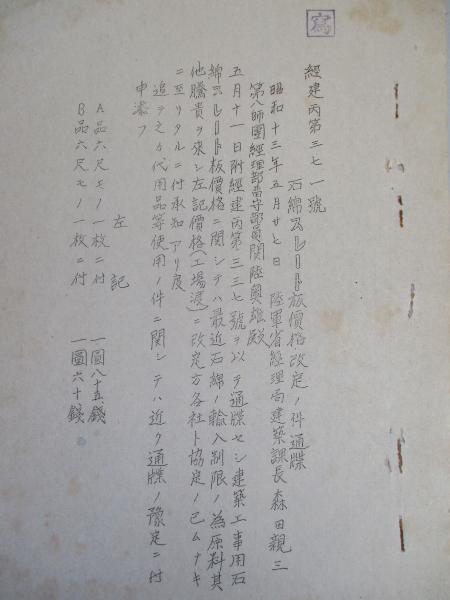 寫
經建丙第三七一號
石綿スレート板價格改定ノ件通牒
昭和十三年五月廿七日 陸軍省經理局建築課長 森田親三
第八師團經理部留守部員 関陸奥雄殿
五月十一日附經建丙第三三七號ヲ以テ通牒セシ建築工事用石
綿スレート板價格ニ関シテハ最近石綿ノ輸入制限ノ為原料其
他騰貴ヲ來シ左記價格(工場渡)ニ改定方各社ト協定ノ已ムナキ
ニ至リタルニ付承知アリ度
追テ之ガ代用品等使用ノ件ニ関シテハ近ク通牒ノ豫定ニ付
申添フ
左記
A品六尺モノ一枚ニ付 一圓八十五錢
B品六尺モノ一枚ニ付 一圓六十錢